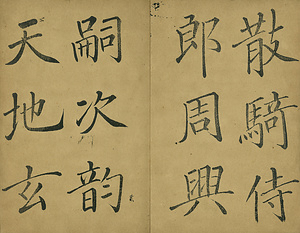 散騎侍
郎周興
嗣次韵
天地玄